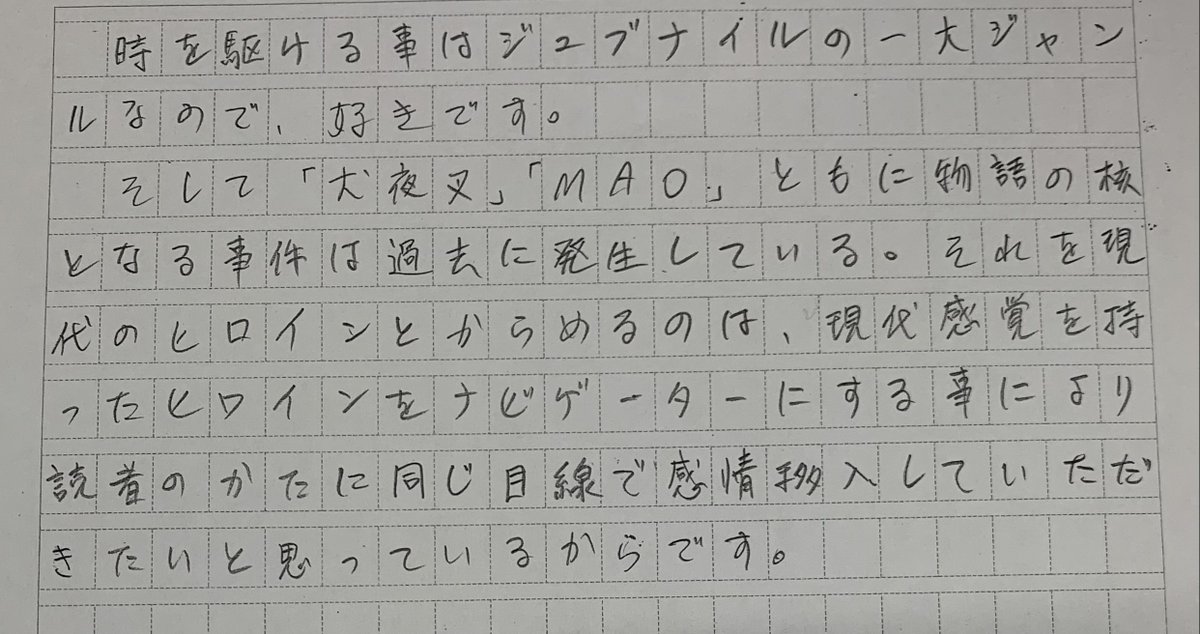 時を駆ける事はジュブナイルの一大ジャン
ルなので、好きです。
そして「犬夜叉」「MAO」ともに物語の核
となる事件は過去に発生している。それを現
代のヒロインとからめるのは、現代感覚を持
ったヒロインをナビゲーターにする事により
読者のかたに同じ目線で感情移入していただ
きたいと思っているからです。